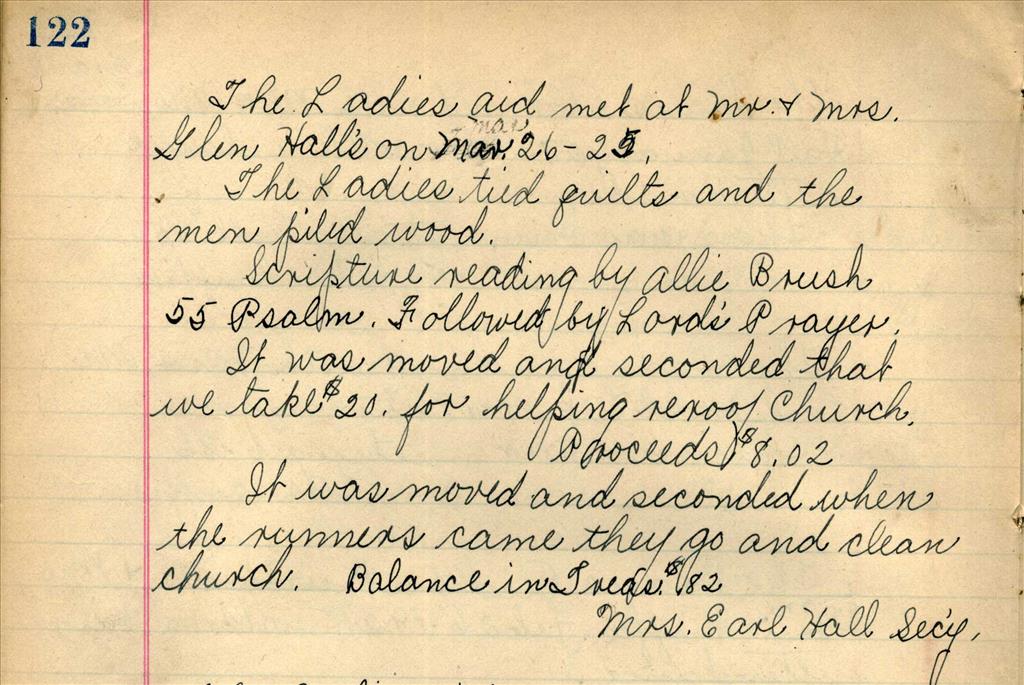 122
The Ladies aid met at Mr. & Mrs.
Mar
Glen Hall's on Mar. 26-25.
The Ladies tied quilts and the
men piled wood.
Scripture reading by allie Brush
55 Psalm. Followed by Lord's Prayer.
It was moved and seconded that
we take $20. for helping reroof Church.
Proceeds $8.02
It was moved and seconded when
the runners came they go and clean
church. Balance in Treas. $82
Mrs. Earl Hall Sec'y.